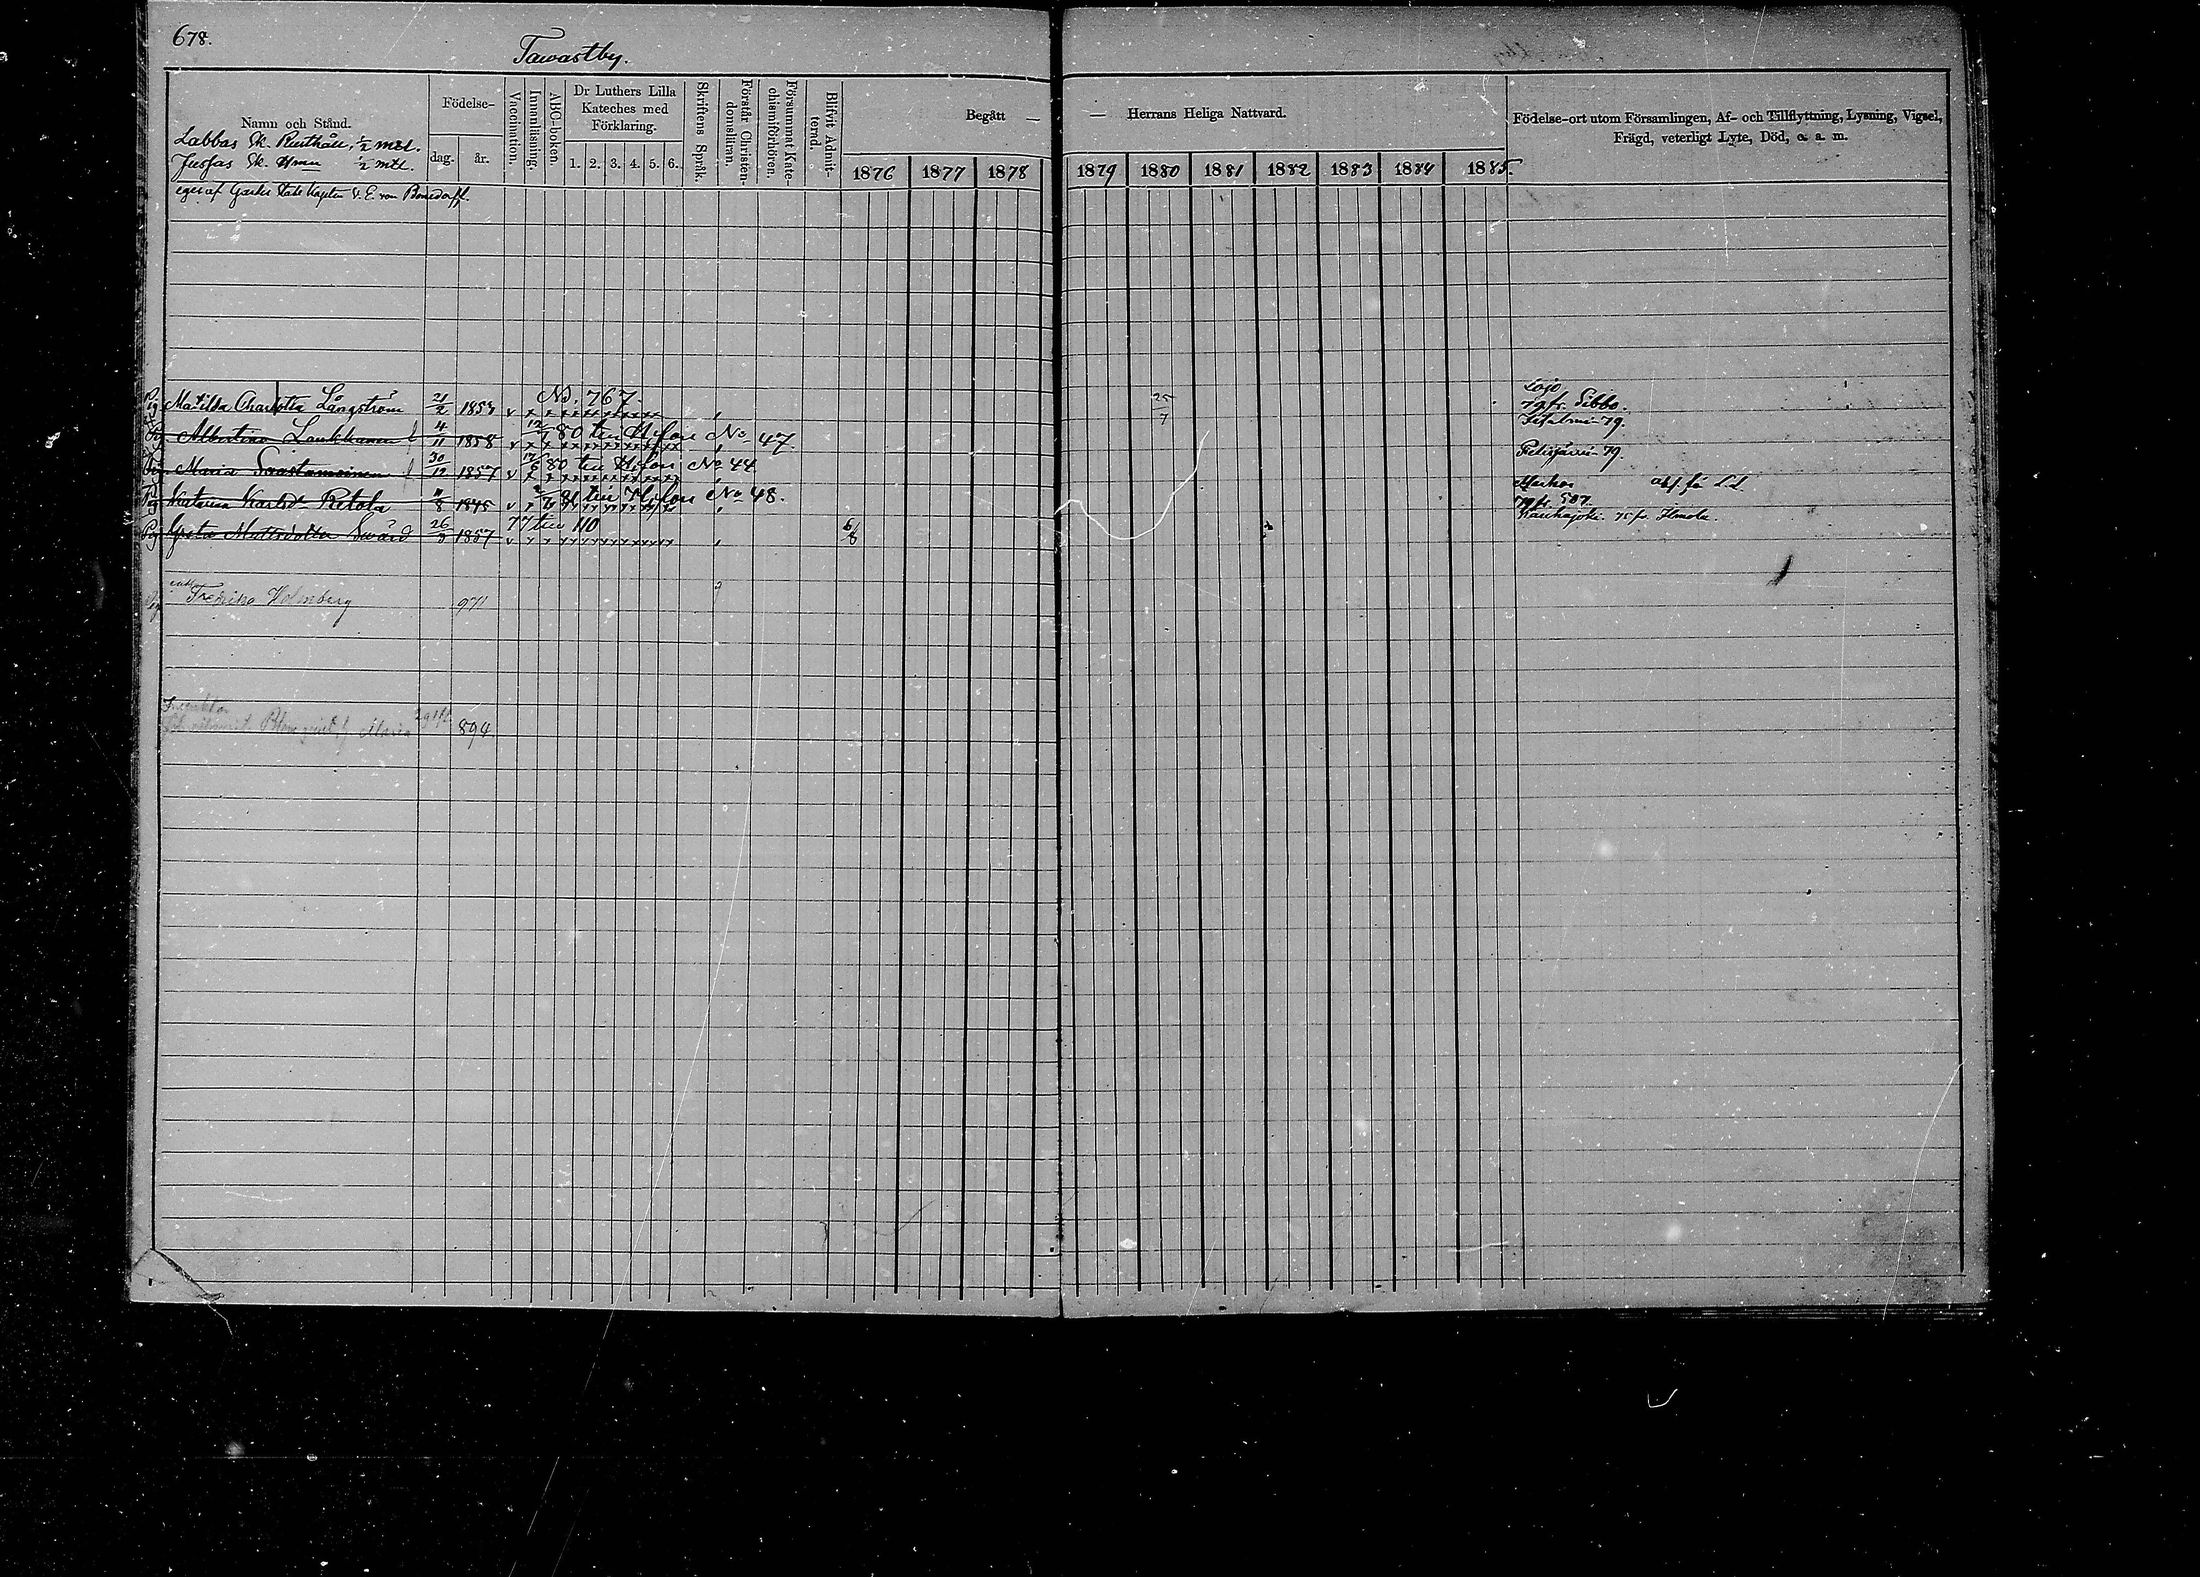 678.
Tawastby.
Namn och Stånd.
Födelse-
dag.
år.
Vaccination.
Innanläsning.
ABC-boken.
Dr Luthers Lilla
Kateches med
Förklaring.
1. 2. 3. 4. 5. 6.
Skriftens Språk.
Förstår Christen-
domsläran.
Försummat Kate-
chismiförhören.
Blifvit Admit-
terad.
Begått —
— Herrans Heliga Nattvard.
1876 1877 1878
1879 1880 1881 1882 1883 1884 1885.
Födelse-ort utom Församlingen, Af- och Tillflyttning, Lysning, Vigsel,
Frägd, veterligt Lyte, Död, o. a. m.
Labbas Sk. Rusthåll, 1/2 mtl.
Jusfas Sk. Hmn 1/2 mtl.
eges af Kapten V. E. von Bonsdorff.
No. 767
Lojo
Pig Matilda Charlotta Långström 21/2 1853 25/7
79 fr. Sibbo.
Pig Albertina 4/11 1858 12/7 80 till H:fors No 47.
79.
Pig Maria Saastamoinen 30/12 1857 17/6 80 till H:fors No 44
79.
Pig Karlsdr Retola 8 1845 81 till H:fors No 48.
507.
Pig Greta Mattsdotter Swärd 26/3 1857 77 till 110 6/8
Kauhajoki. 75 fr. Ilmola.
Pig Fredrika Holmberg 971
Blomqvist Maria 894